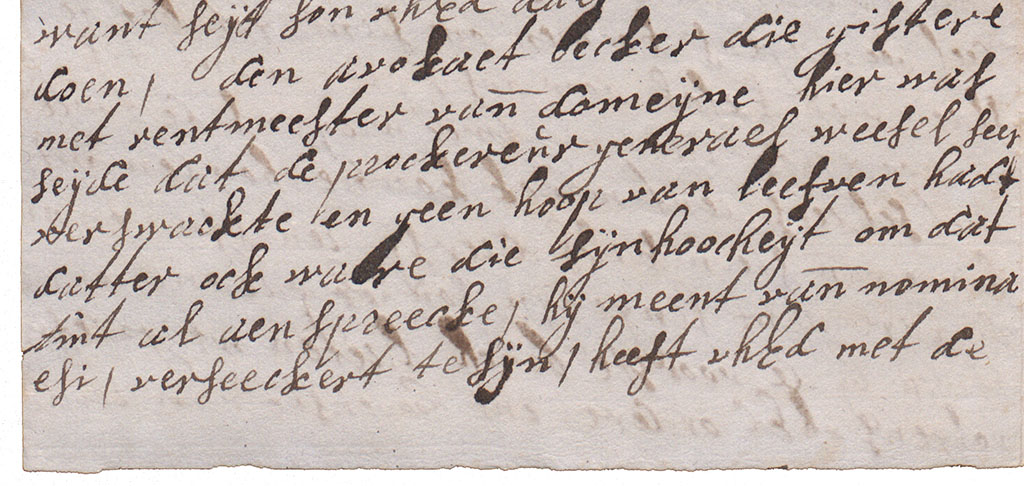 want seijt son uhEd dat
doen / den avokaet becker die gistere
met rentmeester van̅ domeijne hier was
seijde dat de prockereur generael weesel seer
verswackte en geen hoop van leefven had
datter ock waere die sijn hoocheijt om dat
amt al aenspreecke / hij meent van̅ nomina
esi / verseeckert te sijn / heeft uhEd met de